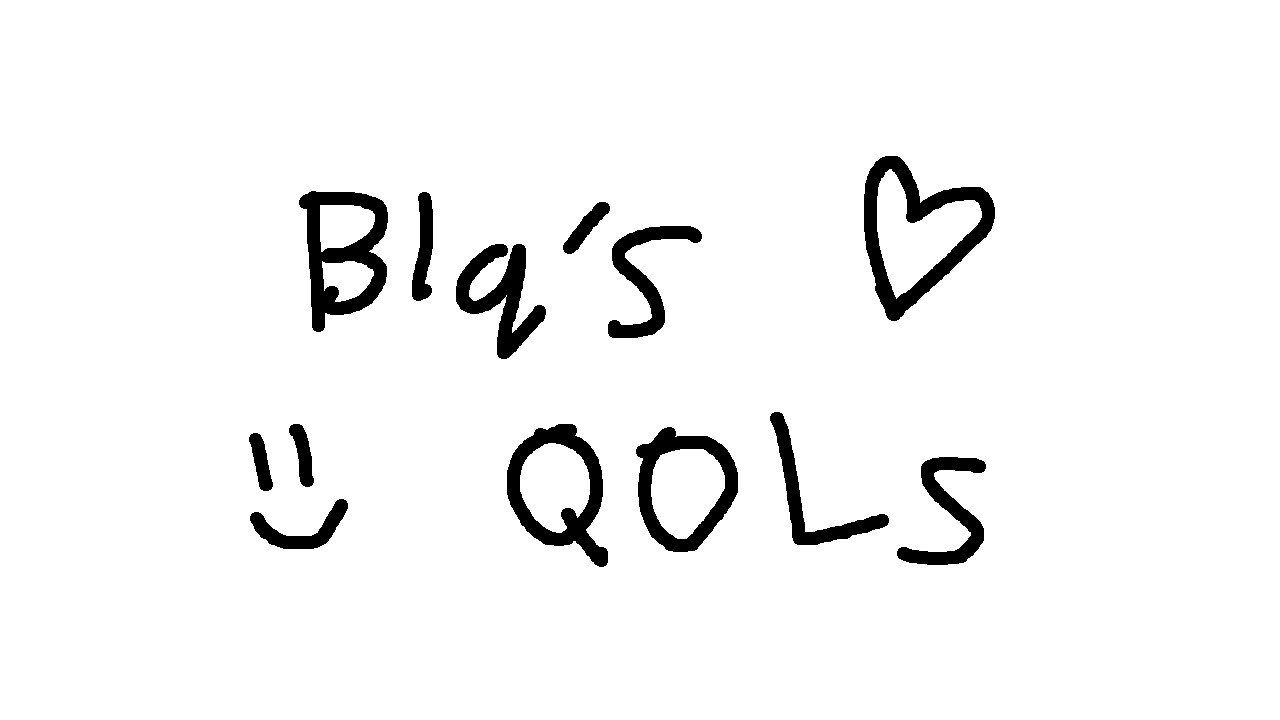 Blq's
QOLs